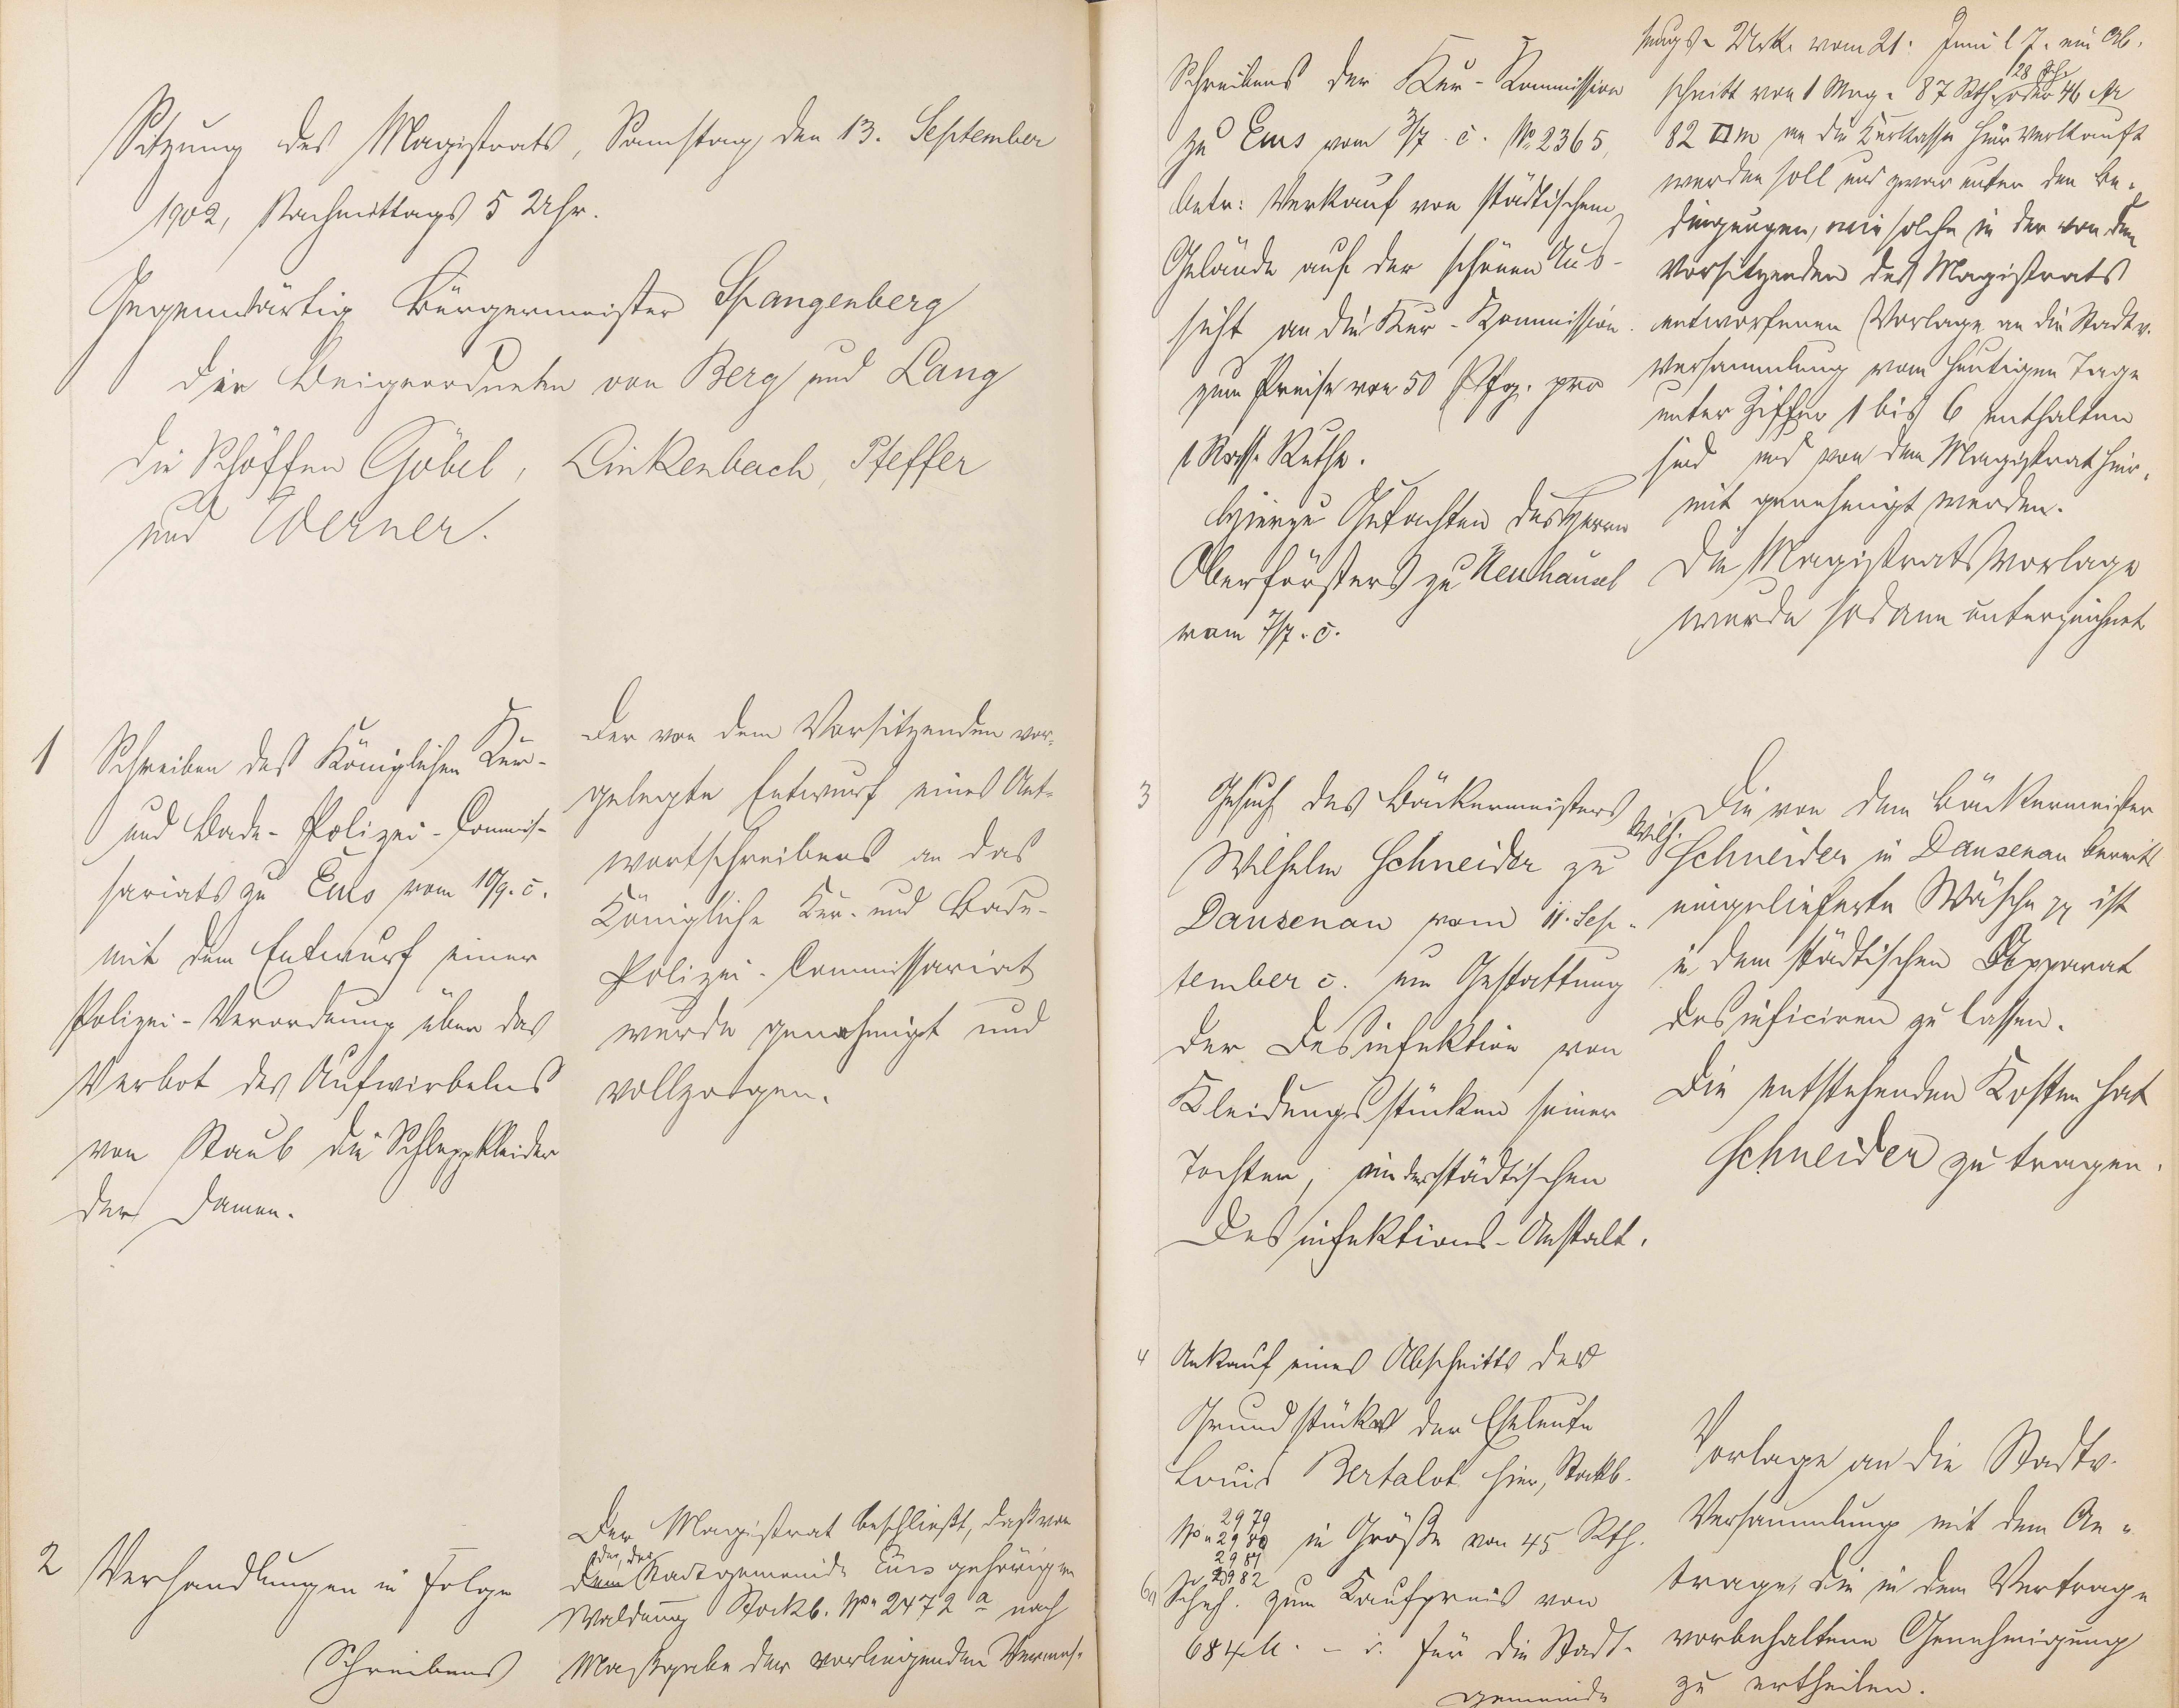 Sitzung des Magistrats, Samstag, den 13. September
1902, Nachmittags 5 Uhr.
Gegenwärtig Bürgermeister Spangenberg
die Beigeordneten von Berg und Lang
die Schöffen Göbel, Linkenbach, Pfeffer
und Werner.
1
Schreiben des Königlichen Kur-
und Bade-Polizei-Commis-
sariats zu Ems vom 10/9. c.
mit dem Entwurf einer
Polizei-Verordnung über das
Verbot des Aufwirbelns
von Staub die Schleppkleider
der Damen.
Der von dem Vorsitzenden vor-
gelegte Entwurf eines Ant-
wortschreibens an das
Königliche Kur- und Bade-
Polizei-Commissariat
wurde genehmigt und
vollzogen.
2
Verhandlungen in Folge
Schreibens
Der Magistrat beschließt, daß von
der, der
dem Stadtgemeinde Ems gehörigen
Waldung Stockb. No. 2472 a nach
Maßgabe der vorliegenden Vermes-
Schreibens der Kur-Kommission
zu Ems vom 3/7 c. No 2365,
betr: Verkauf von städtischem
Gelände auf der schönen Aus-
sicht an die Kur-Kommission
zum Preise von 50 Pfg. pro
1 Nass. Ruthe.
Hierzu Gutachten des Herrn
Oberförsters zu Neuhäusel
vom 7/7. c.
sungs-Urk. vom 21. Juni l. J. ein Ab-
28 Sch.
schnitt von 1 Mrg. 87 Rth. oder 46 Ar
82 □m an die Kurkasse hier verkauft
werden soll und zwar unter den Be-
dingungen, wie solche in der von dem
Vorsitzenden des Magistrats
entworfenen Vorlage an die Stadtv.
Versammlung vom heutigen Tage
unter Ziffer 1 bis 6 enthalten
sind und von dem Magistrat hier-
mit genehmigt werden.
Die Magistratsvorlage
wurde sodann unterzeichnet
3
Gesuch des Bäckermeisters
Wilhelm Schneider zu
Dausenau vom 11. Sep-
tember c. um Gestattung
der Desinfektion von
Kleidungsstücken seiner
Tochter, in der städtischen
Desinfektions-Anstalt.
Die von dem Bäckermeister
Wilh. Schneider in Dausenau bereits
eingelieferte Wäsche pp ist
in dem städtischen Apparat
desinficiren zu lassen.
Die entstehenden Kosten hat
Schneider zu tragen.
4
Ankauf eines Abschnitts des
Grundstücks der Eheleute
Louis Bertalot hier, Stockb.
2979
No. 2980 in Größe von 45 Rth.
2981
2982
Sch. zum Kaufpreis von
684 M. - für die Stadt-
gemeinde
Vorlage an die Stadtv.
Versammlung mit dem An-
trage, die in dem Vertrage
vorbehaltene Genehmigung
zu ertheilen.